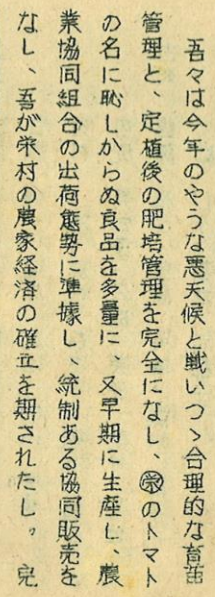 吾々は今年のやうな悪天候と戦いつゝ合理的な育苗
管理と、定植後の肥培管理を完全になし、㊇のトマト
の名に恥しからぬ良品を多量に、又早期に生産し、農
業協同組合の出荷態勢に準據し、統制ある協同販売を
なし、吾が栄村の農家経済の確立を期されたし。完